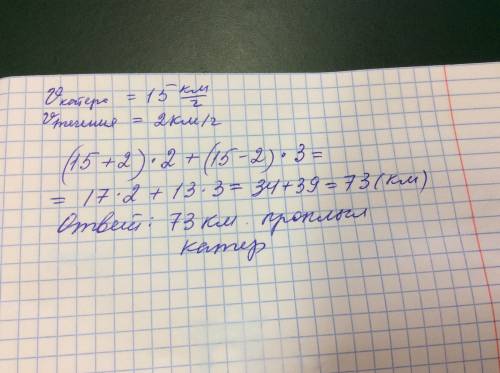 Vкатера = 15 км/ч
Vтечения = 2км/ч
(15+2)·2+(15-2)·3=
= 17·2 + 13·3= 34+39=73(км)
Ответ: 73 км. проплыл
катер